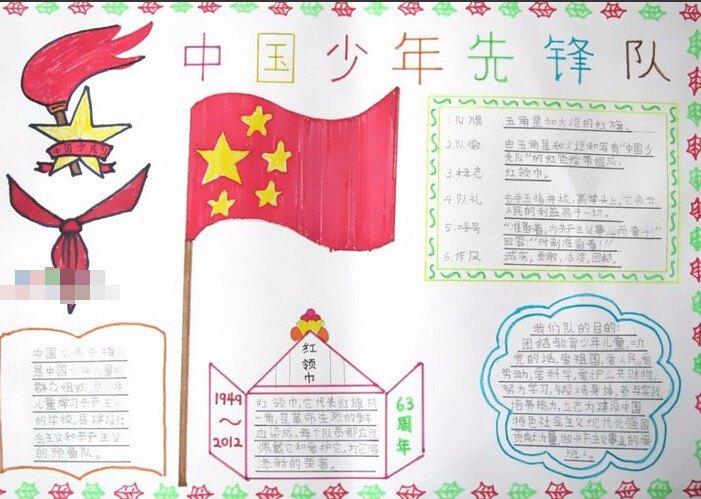 中国少年先锋队
中国少年队
1.队旗 五角星加火炬的红旗。
2.队徽 由五角星和火炬和写有“中国少
先队”的红色绶带组成。
3.标志 红领巾。
4.队礼 右手五指并拢,高举头上,它表示
人民的利益高于一切。
5.呼号 “准备着,为共产主义事业而奋斗!”
回答:“时刻准备着!”
6.作风 诚实,勇敢,活泼,团结。
中国少年先锋队
是中国少年儿童的
群众组织,是少年
儿童学习共产主义
的学校,是建设社
会主义和共产主义
的预备队。
红领巾
1949
~
2012
红领巾,它代表红旗的
一角,是革命先烈的鲜
血染成,每个队员都应该
佩戴它和爱护它,为它增
添新的荣誉。
63
周年
我们队的目的:
团结教育少年儿童,听
党的话,爱祖国,爱人民,爱
劳动,爱科学,爱护公共财物,
努力学习,锻炼身体,参与实践,
培养能力,立志为建设中国
特色社会主义现代化强国
贡献力量,做共产主义事业的接
班人。